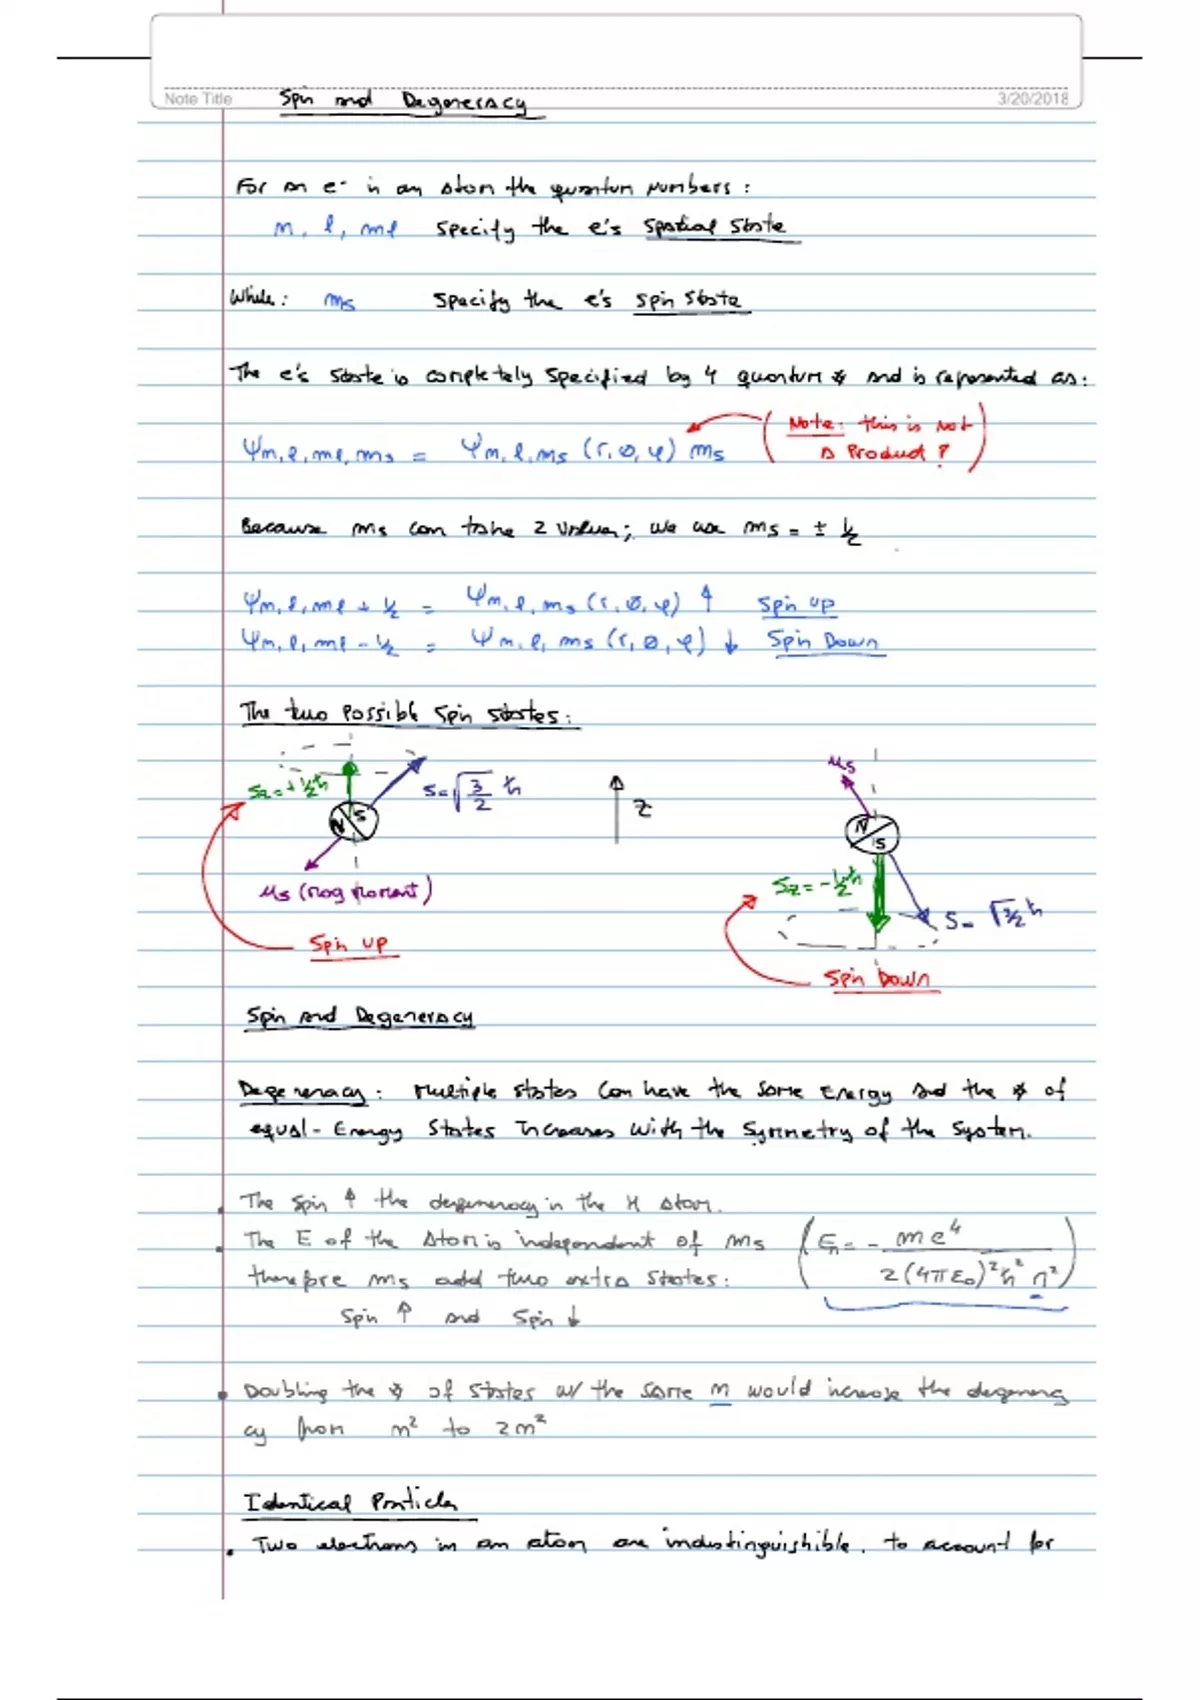 Note Title
Spin and Degeneracy
3/20/2018
For an e⁻ in an atom the quantum numbers:
n, l, ml specify the e's spatial state
While: ms specify the e's spin state
The e's state is completely specified by 4 quantum # and is represented as:
(Note: this is not
a product!)
Ψn,l,ml,ms = Ψn,l,ms (r,θ,φ) ms
Because ms can take 2 values; we use ms = ± ½
Ψn,l,ml + ½ = Ψn,l,ms (r,θ,φ) ↑ Spin up
Ψn,l,ml - ½ = Ψn,l,ms (r,θ,φ) ↓ Spin Down
The two possible spin states:
Sz = + ½ħ
S = √3/2 ħ
N S
Z
μs (mag moment)
Spin up
μs
N S
Sz = - ½ħ
S = √3/2 ħ
Spin Down
Spin and Degeneracy
Degeneracy: Multiple states can have the same Energy and the # of
equal-Energy states increases with the symmetry of the system.
• The spin ↑ the degeneracy in the H atom.
• The E of the Atom is independent of ms (En = - me⁴ / 2(4πε₀)²ħ²n²)
therefore ms add two extra states:
Spin ↑ and Spin ↓
• Doubling the # of states w/ the same n would increase the degenera
cy from n² to 2n²
Identical Particles
• Two electrons in an atom are indistinguishible. to account for